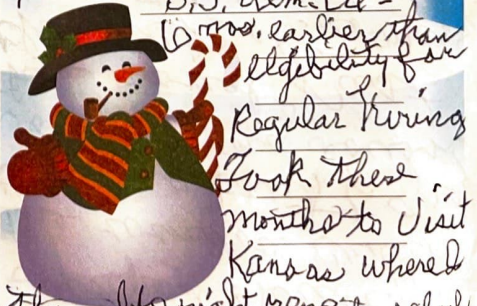 6 mos. earlier than
elgibility for
Regular Hiring
Took these
months to Visit
Kansas where I